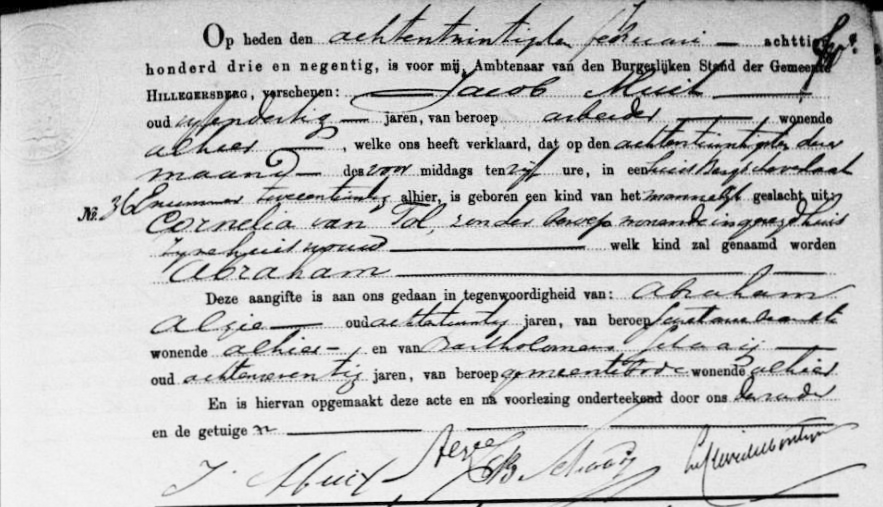 Op heden den achtentwintigsten februari achttien
honderd drie en negentig, is voor mij, Ambtenaar van den Burgerlijken Stand der Gemeente
HILLEGERSBERG, verschenen: Jacob Muit
oud jaren, van beroep arbeider wonende
alhier, welke ons heeft verklaard, dat op den achtentwintigsten dezer
maand des voor middags ten vijf ure, in een huis
No. 36 nummer alhier, is geboren een kind van het mannelijk geslacht uit
Cornelia van Tol, zonder beroep wonende in gezegd huis
zijne huisvrouw welk kind zal genaamd worden
Abraham
Deze aangifte is aan ons gedaan in tegenwoordigheid van: Abraham
oud jaren, van beroep
wonende alhier en van Bartholomeus
oud achtenveertig jaren, van beroep gemeentebode wonende alhier
En is hiervan opgemaakt deze acte en na voorlezing onderteekend door ons
en de getuigen
J. Muit